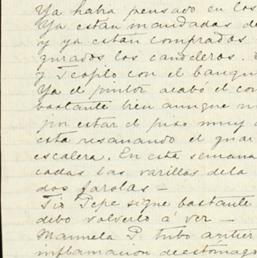 Ya habra pensado en los
Ya estan mandadas de
y ya estan comprados
gurados los candeleros.
y Scopilo con el banqu
Ya el pintor acabó el con
bastante bien aunque n
por estar el piso muy
esta resanando el guar
escalera. En esta semana
cadas las varillas dela
dos farolas —
Tio Pepe sigue bastante
debo volverlo á ver —
Manuela P. tubo
inflamacion de estómago